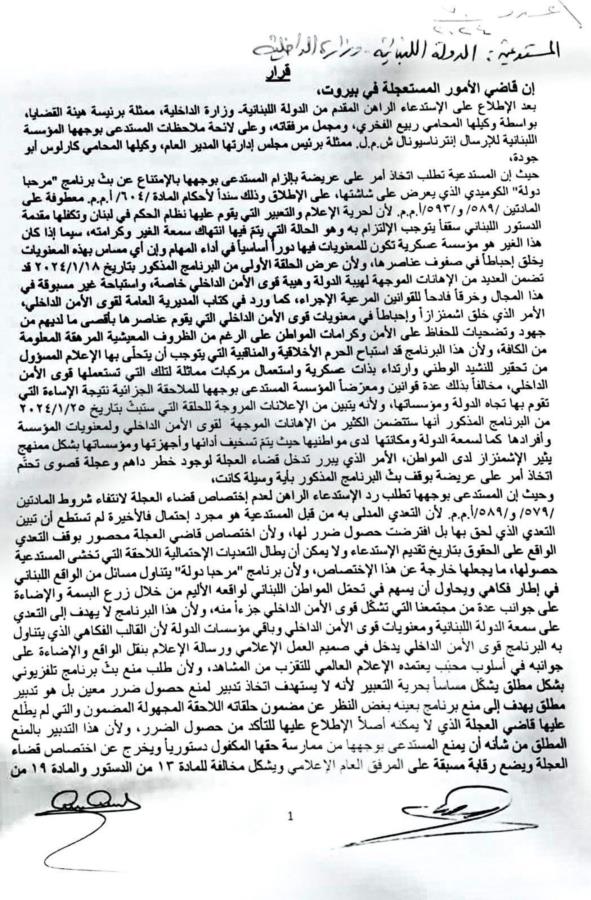 ٢٠٢٤
المستدعية: الدولة اللبنانية - وزارة الداخلية
قرار
إن قاضي الأمور المستعجلة في بيروت،
بعد الإطلاع على الإستدعاء الراهن المقدم من الدولة اللبنانية- وزارة الداخلية، ممثلة برئيسة هيئة القضايا،
بواسطة وكيلها المحامي ربيع الفخري، ومجمل مرفقاته، وعلى لائحة ملاحظات المستدعى بوجهها المؤسسة
اللبنانية للإرسال إنترناسيونال ش.م.ل. ممثلة برئيس مجلس إدارتها المدير العام، وكيلها المحامي كارلوس أبو
جودة،
حيث إن المستدعية تطلب اتخاذ أمر على عريضة بإلزام المستدعى بوجهها بالإمتناع عن بثّ برنامج "مرحبا
دولة" الكوميدي الذي يعرض على شاشتها، على الإطلاق وذلك سنداً لأحكام المادة /٦٠٤/ أ.م.م. معطوفة على
المادتين /٥٨٩/ و/٥٩٣/أ.م.م. لأن لحرية الإعلام والتعبير التي يقوم عليها نظام الحكم في لبنان وتكفلها مقدمة
الدستور اللبناني سقفاً يتوجب الإلتزام به وهو الحالة التي يتم فيها انتهاك سمعة الغير وكرامته، سيما إذا كان
هذا الغير هو مؤسسة عسكرية تكون للمعنويات فيها دوراً أساسياً في أداء المهام وإن أي مساس بهذه المعنويات
يخلق إحباطاً في صفوف عناصرها، ولأن عرض الحلقة الأولى من البرنامج المذكور بتاريخ ٢٠٢٤/١/١٨ قد
تضمن العديد من الإهانات الموجهة لهيبة الدولة وهيبة قوى الأمن الداخلي خاصة، واستباحة غير مسبوقة في
هذا المجال وخرقاً فادحاً للقوانين المرعية الإجراء، كما ورد في كتاب المديرية العامة لقوى الأمن الداخلي،
الأمر الذي خلق اشمئزازاً وإحباطاً في معنويات قوى الأمن الداخلي التي يقوم عناصرها بأقصى ما لديهم من
جهود وتضحيات للحفاظ على الأمن وكرامات المواطن على الرغم من الظروف المعيشية المرهقة المعلومة
من الكافة، ولأن هذا البرنامج قد استباح الحرم الأخلاقية والمناقبية التي يتوجب أن يتحلّى بها الإعلام المسؤول
من تحقير للنشيد الوطني وارتداء بذات عسكرية واستعمال مركبات مماثلة لتلك التي تستعملها قوى الأمن
الداخلي، مخالفاً بذلك عدة قوانين ومعرّضاً المؤسسة المستدعى بوجهها للملاحقة الجزائية نتيجة الإساءة التي
تقوم بها تجاه الدولة ومؤسساتها، ولأنه يتبين من الإعلانات المروجة للحلقة التي ستبثّ بتاريخ ٢٠٢٤/١/٢٥
من البرنامج المذكور أنها ستتضمن الكثير من الإهانات الموجهة لقوى الأمن الداخلي ولمعنويات المؤسسة
وأفرادها كما لسمعة الدولة ومكانتها لدى مواطنيها حيث يتم تسخيف أدائها وأجهزتها ومؤسساتها بشكل ممنهج
يثير الإشمئزاز لدى المواطن، الأمر الذي يبرر تدخل قضاء العجلة لوجود خطر داهم وعجلة قصوى تحتّم
اتخاذ أمر على عريضة بوقف بثّ البرنامج المذكور بأية وسيلة كانت،
وحيث إن المستدعى بوجهها تطلب رد الإستدعاء الراهن لعدم إختصاص قضاء العجلة لانتفاء شروط المادتين
/٥٧٩/ و/٥٨٩/أ.م.م. لأن التعدي المدلى به من قبل المستدعية هو مجرد إحتمال فالأخيرة لم تستطع أن تبين
التعدي الذي لحق بها بل افترضت حصول ضرر لها، ولأن اختصاص قاضي العجلة محصور بوقف التعدي
الواقع على الحقوق بتاريخ تقديم الإستدعاء ولا يمكن أن يطال التعديات الإحتمالية اللاحقة التي تخشى المستدعية
حصولها، ما يجعلها خارجة عن هذا الإختصاص، ولأن برنامج "مرحبا دولة" يتناول مسائل من الواقع اللبناني
في إطار فكاهي ويحاول أن يسهم في تحمّل المواطن اللبناني لواقعه الأليم من خلال زرع البسمة والإضاءة
على جوانب عدة من مجتمعنا التي تشكّل قوى الأمن الداخلي جزءاً منه، ولأن هذا البرنامج لا يهدف إلى التعدي
على سمعة الدولة اللبنانية ومعنويات قوى الأمن الداخلي وباقي مؤسسات الدولة لأن القالب الفكاهي الذي يتناول
به البرنامج قوى الأمن الداخلي يدخل في صميم العمل الإعلامي ورسالة الإعلام بنقل الواقع والإضاءة على
جوانبه في أسلوب محبّب يعتمده الإعلام العالمي للتقرّب من المشاهد، ولأن طلب منع بثّ برنامج تلفزيوني
بشكل مطلق يشكّل مساساً بحرية التعبير لأنه لا يستهدف اتخاذ تدبير لمنع حصول ضرر معين بل هو تدبير
مطلق يهدف إلى منع برنامج بعينه بغض النظر عن مضمون حلقاته اللاحقة المجهولة المضمون والتي لم يطّلع
عليها قاضي العجلة الذي لا يمكنه أصلاً الإطلاع عليها للتأكد من حصول الضرر، ولأن هذا التدبير بالمنع
المطلق من شأنه أن يمنع المستدعى بوجهها من ممارسة حقها المكفول دستورياً ويخرج عن اختصاص قضاء
العجلة ويضع رقابة مسبقة على المرفق العام الإعلامي ويشكل مخالفة للمادة ١٣ من الدستور والمادة ١٩ من
1